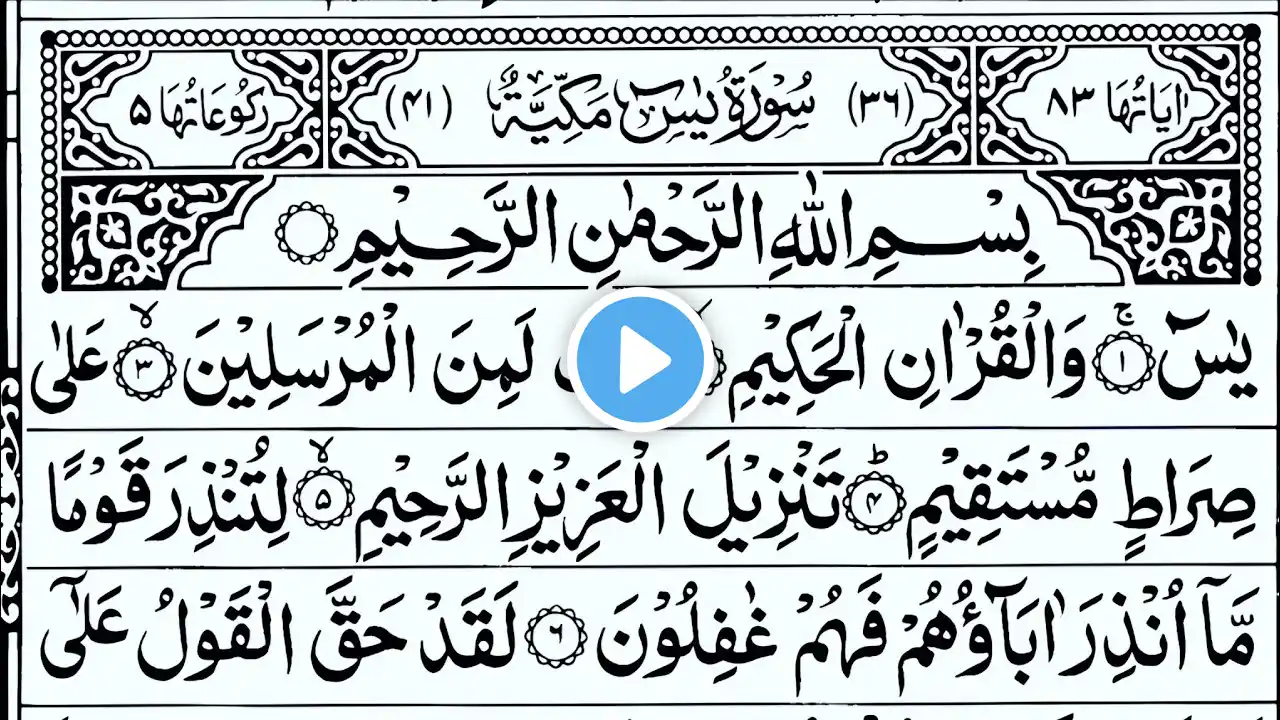 اٰيَاتُهَا ٨٣ (٣٦) سُوْرَةُ يٰسٓ مَكِّيَّةٌ (٤١) رُكُوْعَاتُهَا ٥
بِسْمِ اللّٰهِ الرَّحْمٰنِ الرَّحِيْمِ
يٰسٓ ۚ ﴿١﴾ وَالْقُرْاٰنِ الْحَكِيْمِ لَمِنَ الْمُرْسَلِيْنَ ۙ ﴿٣﴾ عَلٰى
صِرَاطٍ مُّسْتَقِيْمٍ ؕ ﴿٤﴾ تَنْزِيْلَ الْعَزِيْزِ الرَّحِيْمِ ۙ ﴿٥﴾ لِتُنْذِرَ قَوْمًا
مَّاۤ اُنْذِرَ اٰبَآؤُهُمْ فَهُمْ غٰفِلُوْنَ ﴿٦﴾ لَقَدْ حَقَّ الْقَوْلُ عَلٰۤى